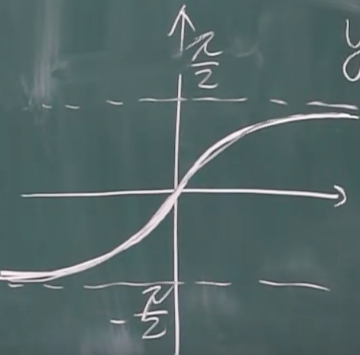 π/2
y
-π/2